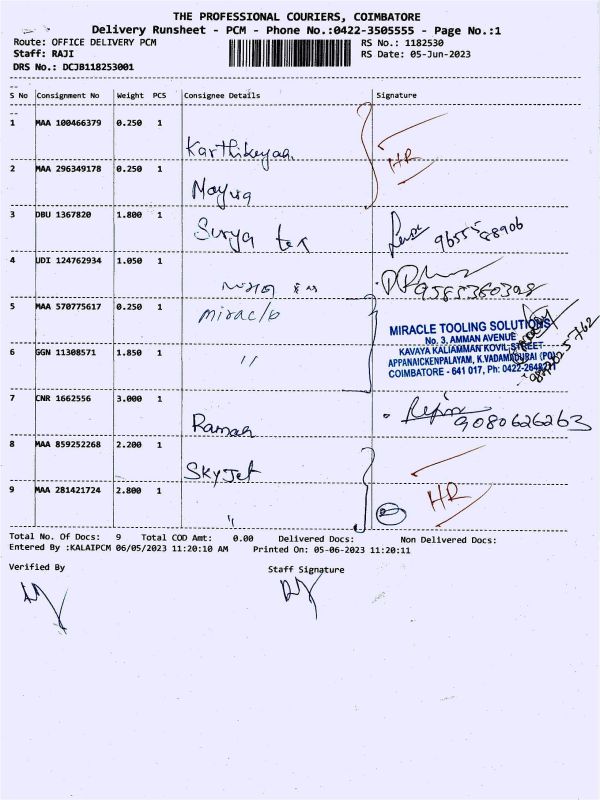 THE PROFESSIONAL COURIERS, COIMBATORE
Delivery Runsheet - PCM - Phone No.:0422-3505555 - Page No.:1
Route: OFFICE DELIVERY PCM
RS No.: 1182530
Staff: RAJI
RS Date: 05-Jun-2023
DRS No.: DCJB118253001
S No Consignment No Weight PCS Consignee Details Signature
1 MAA 100466379 0.250 1
Karthikeyan
HR
2 MAA 296349178 0.250 1
Mayura
3 DBU 1367820 1.800 1
Surya tex
9655588906
4 UDI 124762934 1.050 1
9585360398
5 MAA 570775617 0.250 1
miracle
MIRACLE TOOLING SOLUTIONS
No. 3, AMMAN AVENUE
KAVAYA KALIAMMAN KOVIL STREET
APPANAICKENPALAYAM, K.VADAMADURAI (PO)
COIMBATORE - 641 017, Ph: 0422-
6 GGN 11308571 1.850 1
"
7 CNR 1662556 3.000 1
Raman
9080626263
8 MAA 859252268 2.200 1
SkyJet
HR
9 MAA 281421724 2.800 1
"
Total No. Of Docs: 9 Total COD Amt: 0.00 Delivered Docs: Non Delivered Docs:
Entered By :KALAIPCM 06/05/2023 11:20:10 AM Printed On: 05-06-2023 11:20:11
Verified By
Staff Signature